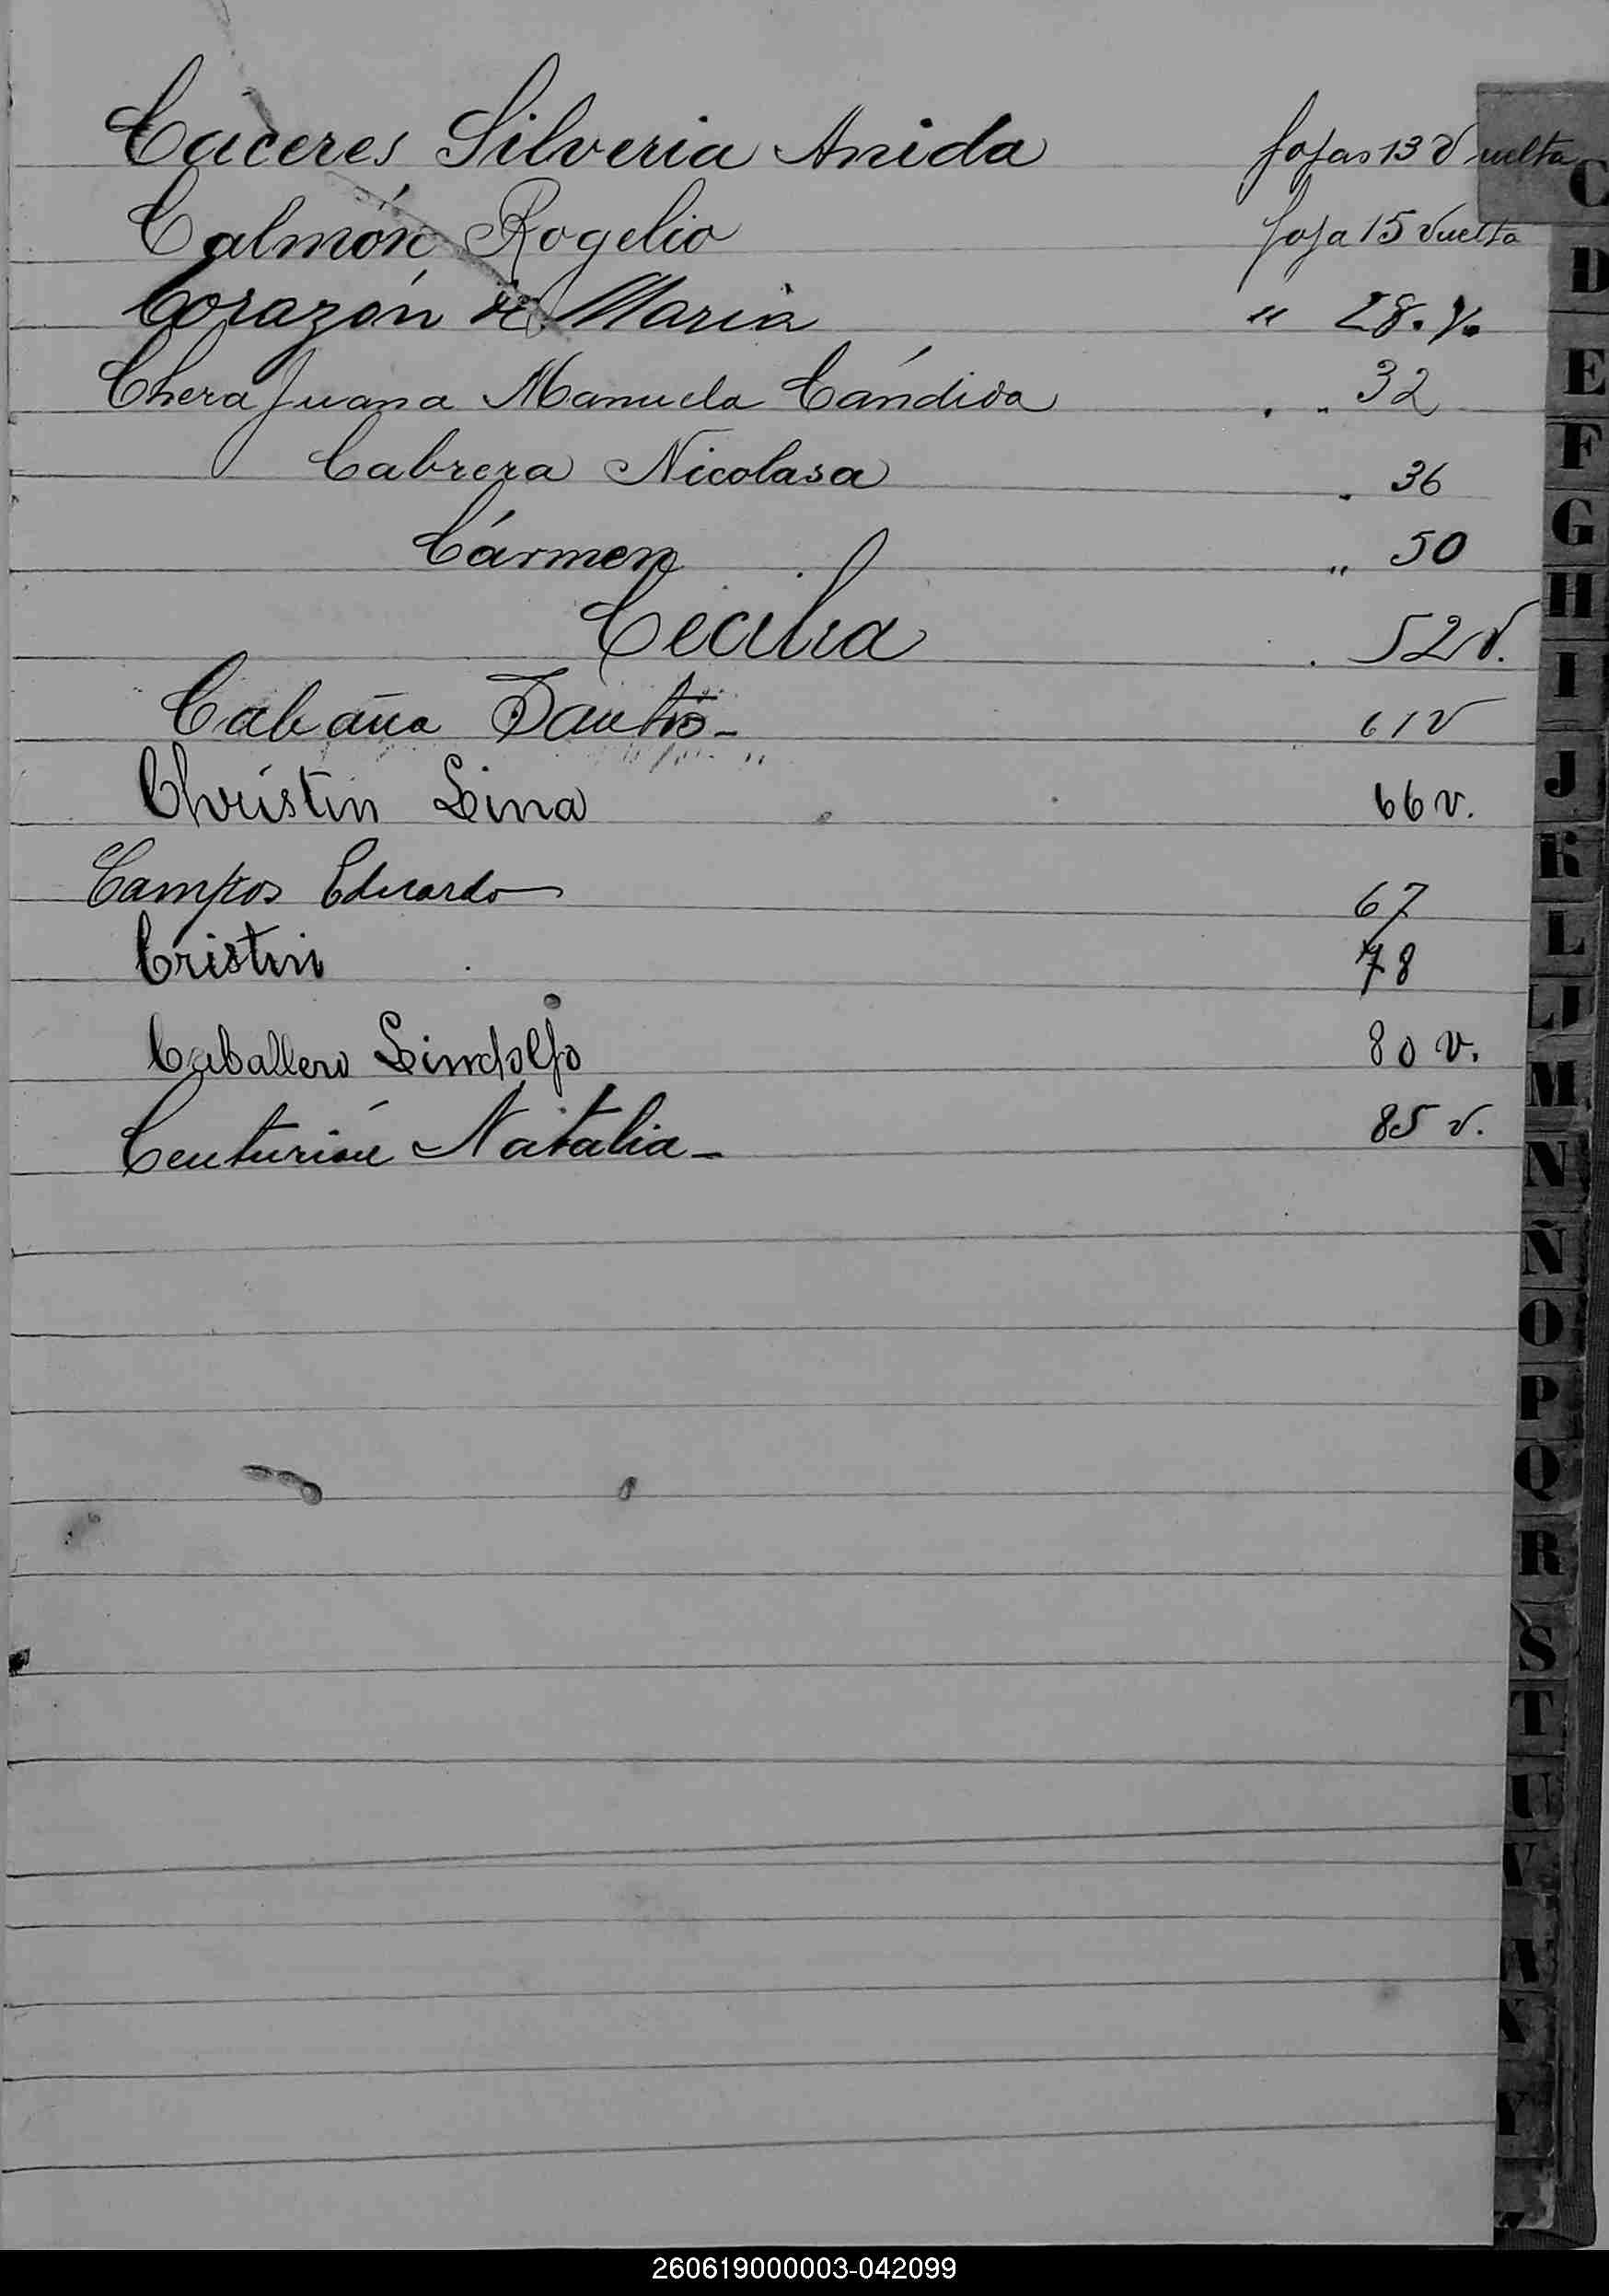 Caceres Silveria Anida fojas 13 Vuelta
Calmón Rogelio foja 15 Vuelta
Corazón de Maria " 28. V.
Chera Juana Manuela Cándida . " 32
Cabrera Nicolasa " 36
Cármen " 50
Cecilia . 52 V.
Cabaña 61 V
Christin Lina 66 v.
Campos Eduardo 67
Cristin 78
Caballero Lindolfo 80 v.
Centurión Natalia - 85 v.
C
D
E
F
G
H
I
J
K
L
LL
M
N
Ñ
O
P
Q
R
S
T
U
V
X
Y
260619000003-042099